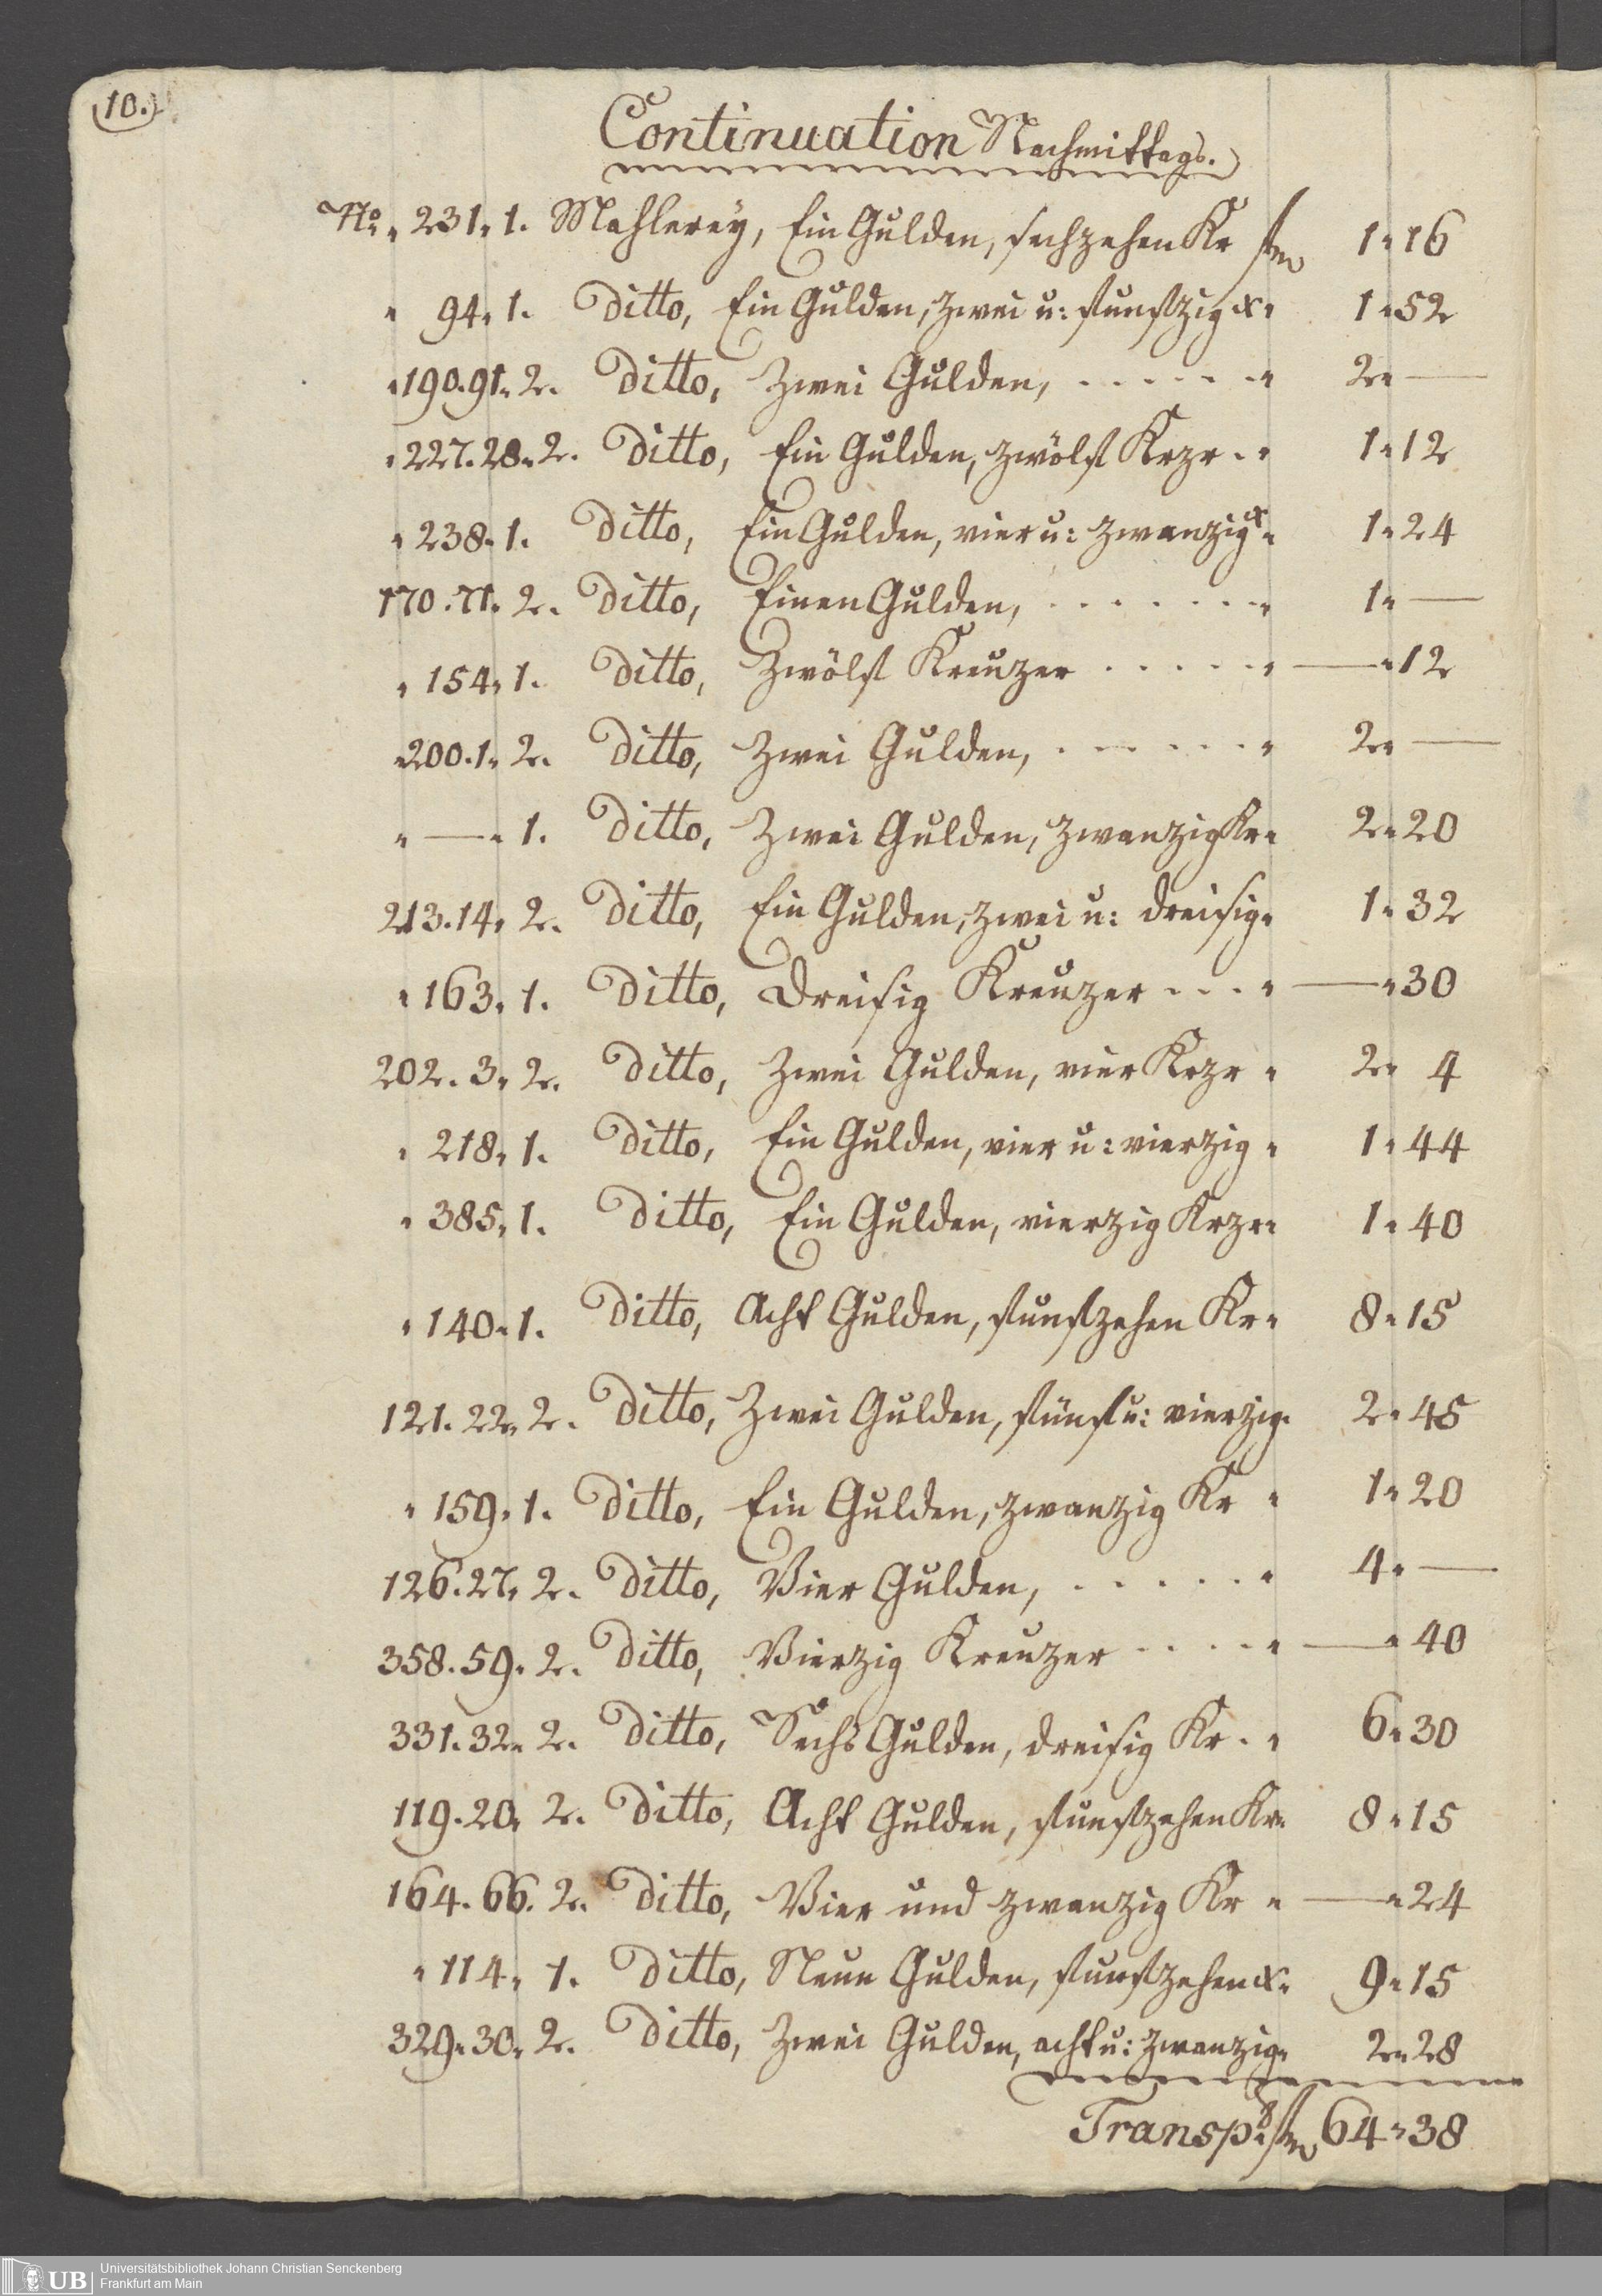 10.
Continuation Nachmittags.
No. 231. 1. Mahlerey, Ein Gulden, sechzehen Kr f 1 " 16
" 94. 1. Ditto, Ein Gulden, zwei u: funfzig x. 1 " 52
" 190.91. 2. Ditto, Zwei Gulden, . . . . . . " 2 " —
" 227.28. 2. Ditto, Ein Gulden, zwölf Krzr . " 1 " 12
" 238. 1. Ditto, Ein Gulden, vier u: zwanzig x " 1 " 24
170.71. 2. Ditto, Einen Gulden, . . . . . . . " 1 " —
" 154. 1. Ditto, Zwölf Kreuzer . . . . . " — " 12
" 200.1. 2. Ditto, Zwei Gulden, . . . . . . " 2 " —
" — " 1. Ditto, Zwei Gulden, zwanzig Kr " 2 " 20
213.14. 2. Ditto, Ein Gulden, zwei u: dreisig " 1 " 32
" 163. 1. Ditto, Dreisig Kreuzer . . . " — " 30
202. 3. 2. Ditto, Zwei Gulden, vier Krzr " 2 " 4
" 218. 1. Ditto, Ein Gulden, vier u: vierzig " 1 " 44
" 385. 1. Ditto, Ein Gulden, vierzig Krzr " 1 " 40
" 140. 1. Ditto, Acht Gulden, funfzehen Kr " 8 " 15
121. 22. 2. Ditto, Zwei Gulden, fünf u: vierzig " 2 " 45
" 159. 1. Ditto, Ein Gulden, zwanzig Kr " 1 " 20
126.27. 2. Ditto, Vier Gulden, . . . . . " 4 " —
358.59. 2. Ditto, Vierzig Kreuzer . . . . " — " 40
331.32. 2. Ditto, Sechs Gulden, dreisig Kr . " 6 " 30
119.20. 2. Ditto, Acht Gulden, funfzehen Kr " 8 " 15
164. 66. 2. Ditto, Vier und zwanzig Kr " — " 24
" 114. 1. Ditto, Neun Gulden, funfzehen x " 9 " 15
329.30. 2. Ditto, Zwei Gulden, acht u: zwanzig " 2 " 28
Transp: f 64 " 38
UB
Universitätsbibliothek Johann Christian Senckenberg
Frankfurt am Main